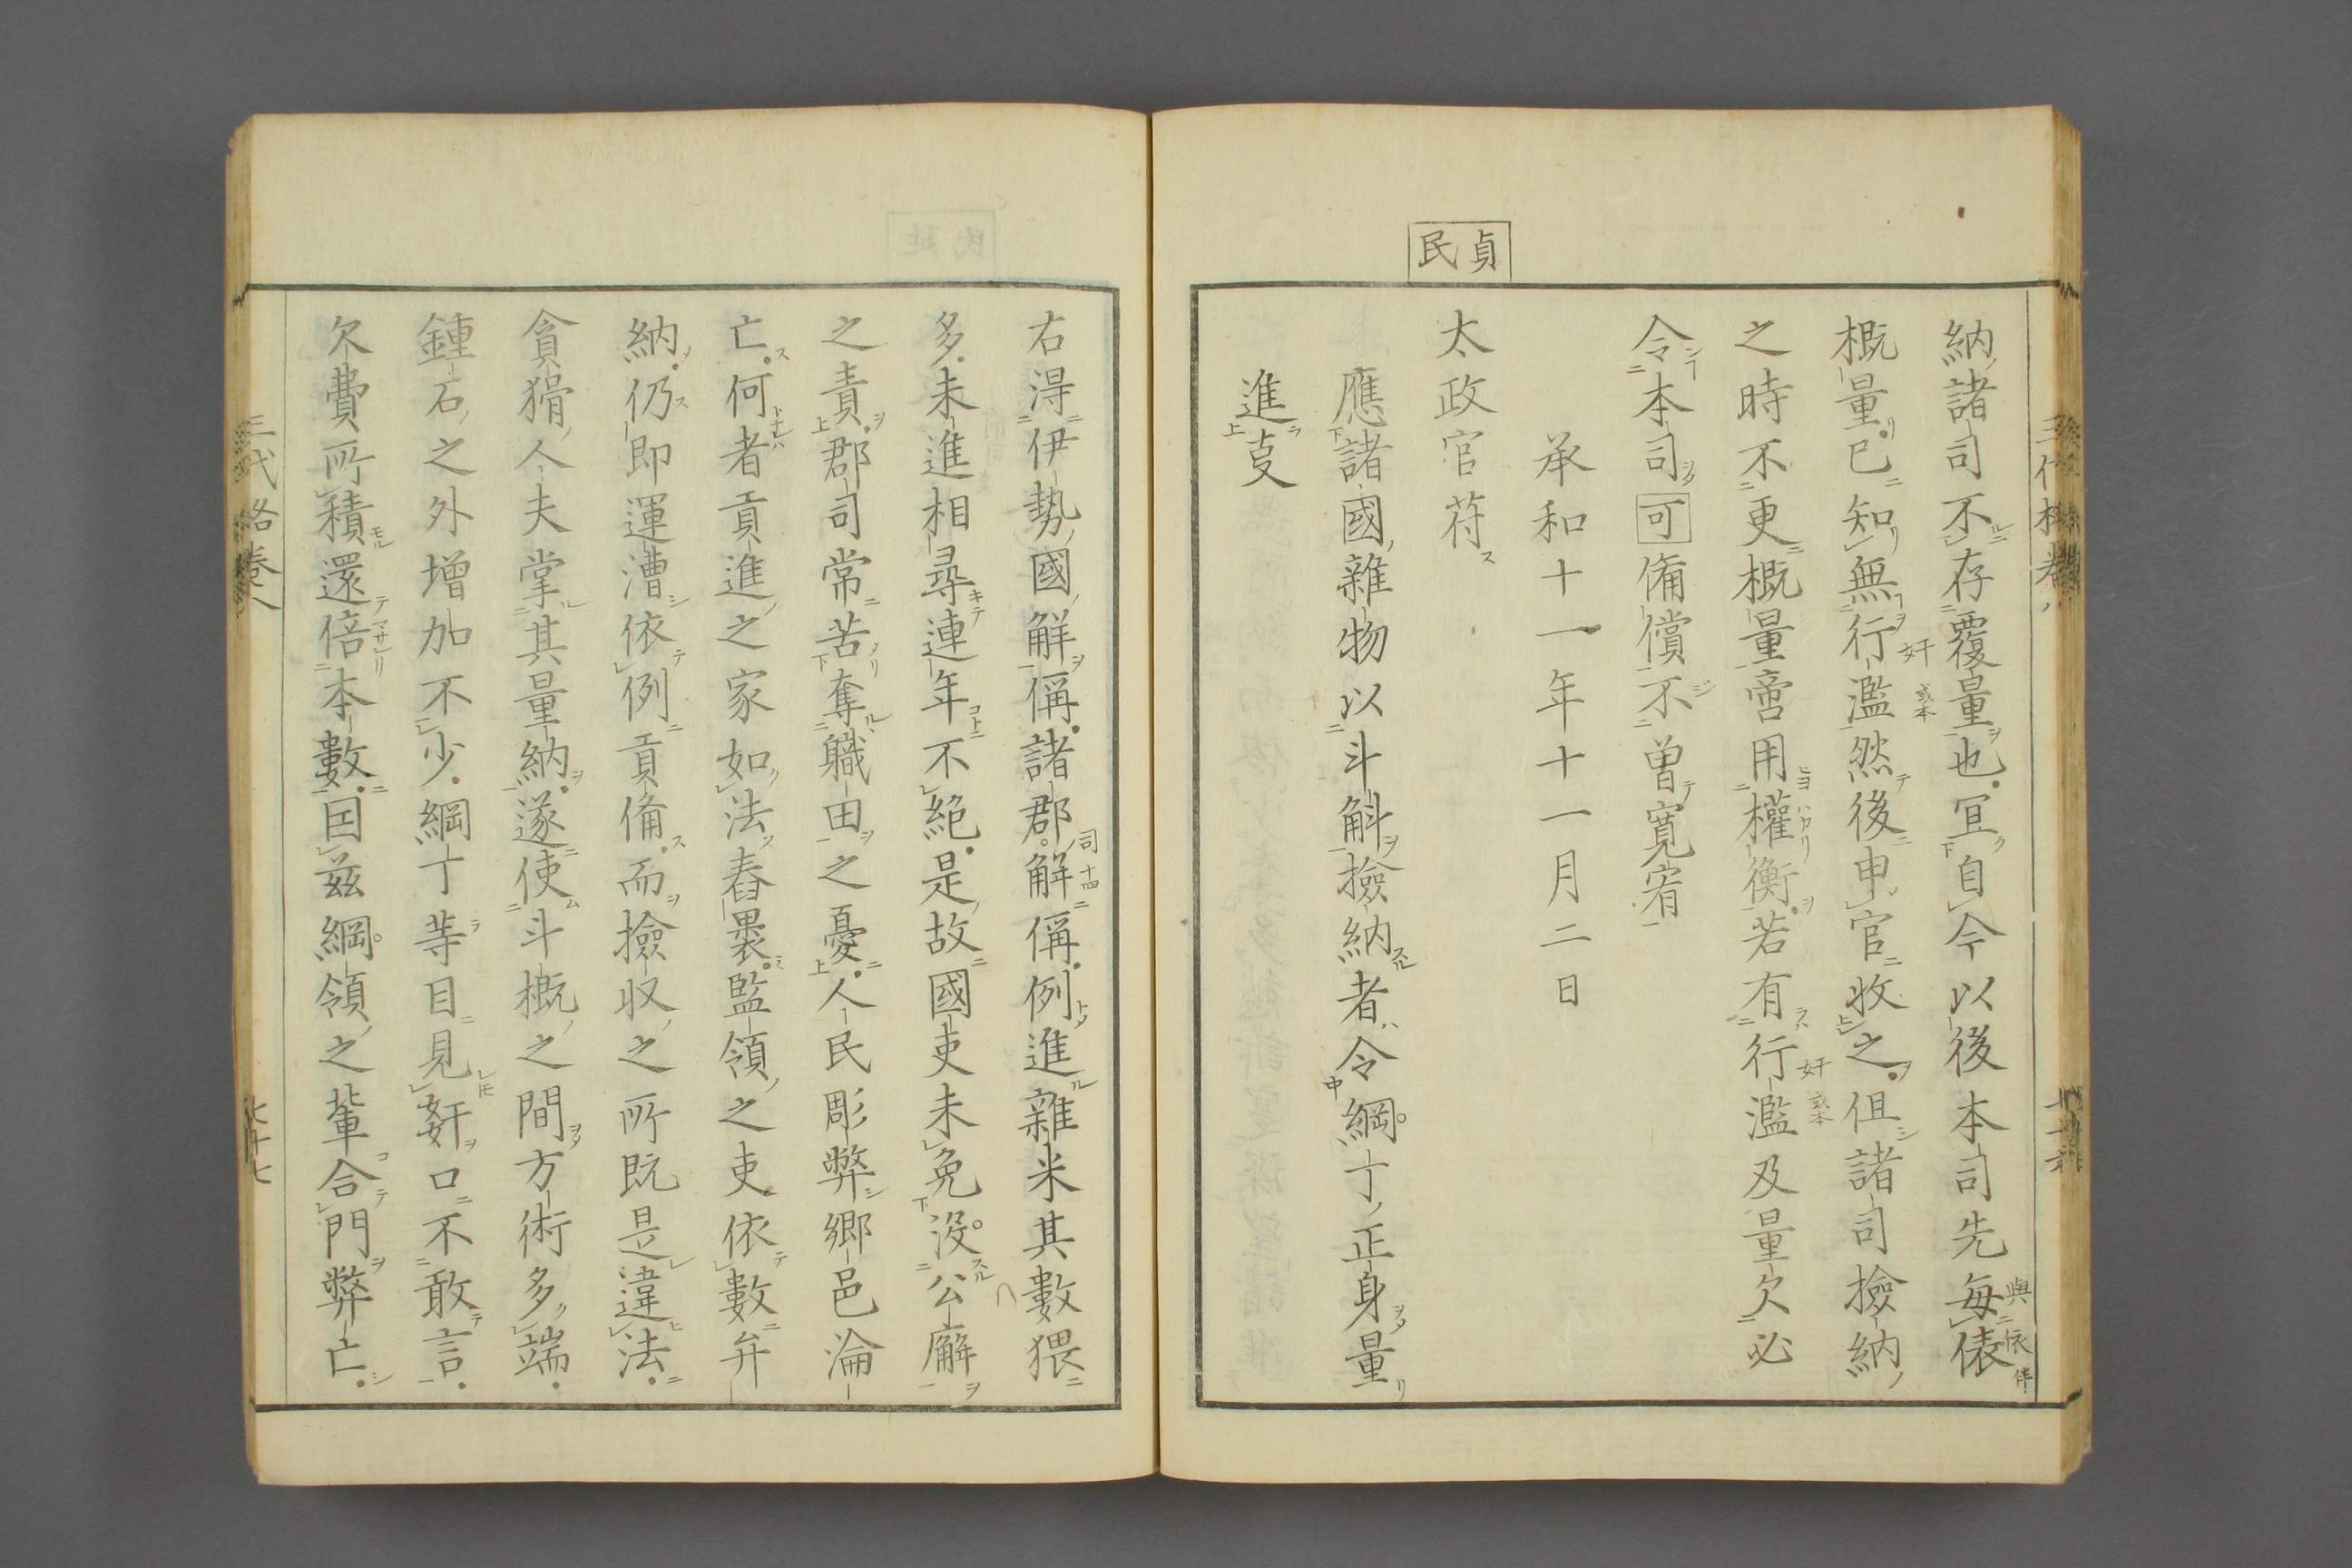 民貞
納諸司不存覆量也冝自今以後本司先毎俵
概量巳知無行濫然後申官收之但諸司撿納
之時不更概量啻用權衡若有行濫及量欠必
令本司可俻償不曽寛宥
承和十一年十一月二日
太政官苻
應諸國雜物以斗斛撿納者令綱丁正身量
進叓
右淂伊勢國解偁諸郡解偁例進雜米其數猥
多未進相尋連年不絶是故國吏未免沒公廨
之責郡司常苦奪職田之憂人民彫弊郷邑淪
亡何者貢進之家如法舂褁監領之吏依數弁
納仍即運漕依例貢俻而撿収之所既是違法
貪猾人夫掌其量納遂使斗概之間方術多端
鍾石之外増加不少綱丁等目見姧口不敢言
欠費所積還倍本數因兹綱領之輩合門弊亡
三代格卷八